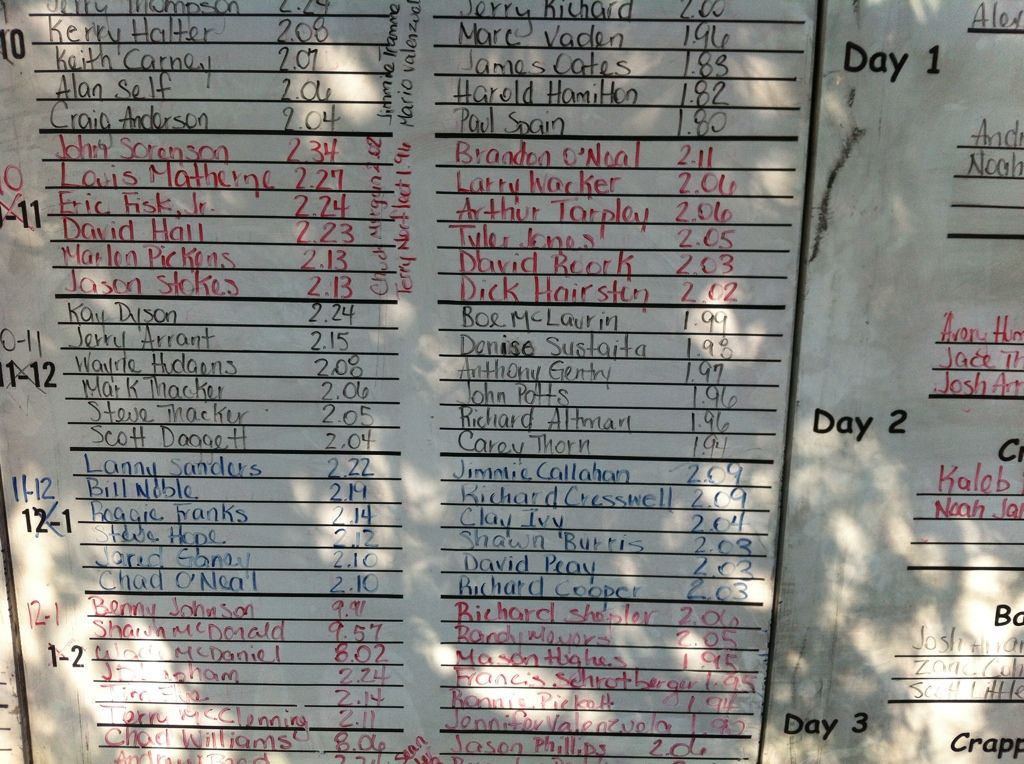 Jerry Thompson 2.24
Kerry Halter 2.08
Keith Carney 2.07
Alan Self 2.06
Craig Anderson 2.04
John Sorenson 2.34
Louis Matherne 2.27
Eric Fisk, Jr. 2.24
David Hall 2.23
Marlon Pickens 2.13
Jason Stokes 2.13
Kay Dyson 2.24
Jerry Arrant 2.15
Wayne Hudgens 2.08
Mark Thacker 2.06
Steve Thacker 2.05
Scott Daggett 2.04
Lanny Sanders 2.22
Bill Noble 2.19
Reggie Franks 2.14
Steve Hope 2.12
Jared 2.10
Chad O'Neal 2.10
Benny Johnson 9.91
Shawn McDonald 9.57
McDaniel 8.02
2.24
2.14
Terry McClenning 2.11
Chad Williams 8.06
10
11
0-11
11-12
11-12
12-1
12-1
1-2
Jimmie
Mario Valenzuela
2.02
Terry 1.96
Jerry Richard 2.00
Marc Vaden 1.96
James Oates 1.83
Harold Hamilton 1.82
Paul Spain 1.80
Brandon O'Neal 2.11
Larry Wacker 2.06
Arthur Tarpley 2.06
Tyler Jones 2.05
David Roork 2.03
Dick Hairstin 2.02
Boe McLaurin 1.99
Denise Sustaita 1.98
Anthony Gentry 1.97
John Potts 1.96
Richard Altman 1.96
Carey Thorn 1.94
Jimmie Callahan 2.09
Richard Cresswell 2.09
Clay Ivy 2.04
Shawn Burris 2.03
David Peay 2.03
Richard Cooper 2.03
Richard Shepler 2.06
Randy Meyers 2.05
Mason Hughes 1.95
Francis Schrotberger 1.95
Ronnie Pickett 1.94
Jennifer Valenzuela 1.92
Jason Phillips 2.06
Day 1
Noah
Day 2
Jace
Josh
Kaleb
Noah
Josh
Zane
Scott
Day 3
Crapp